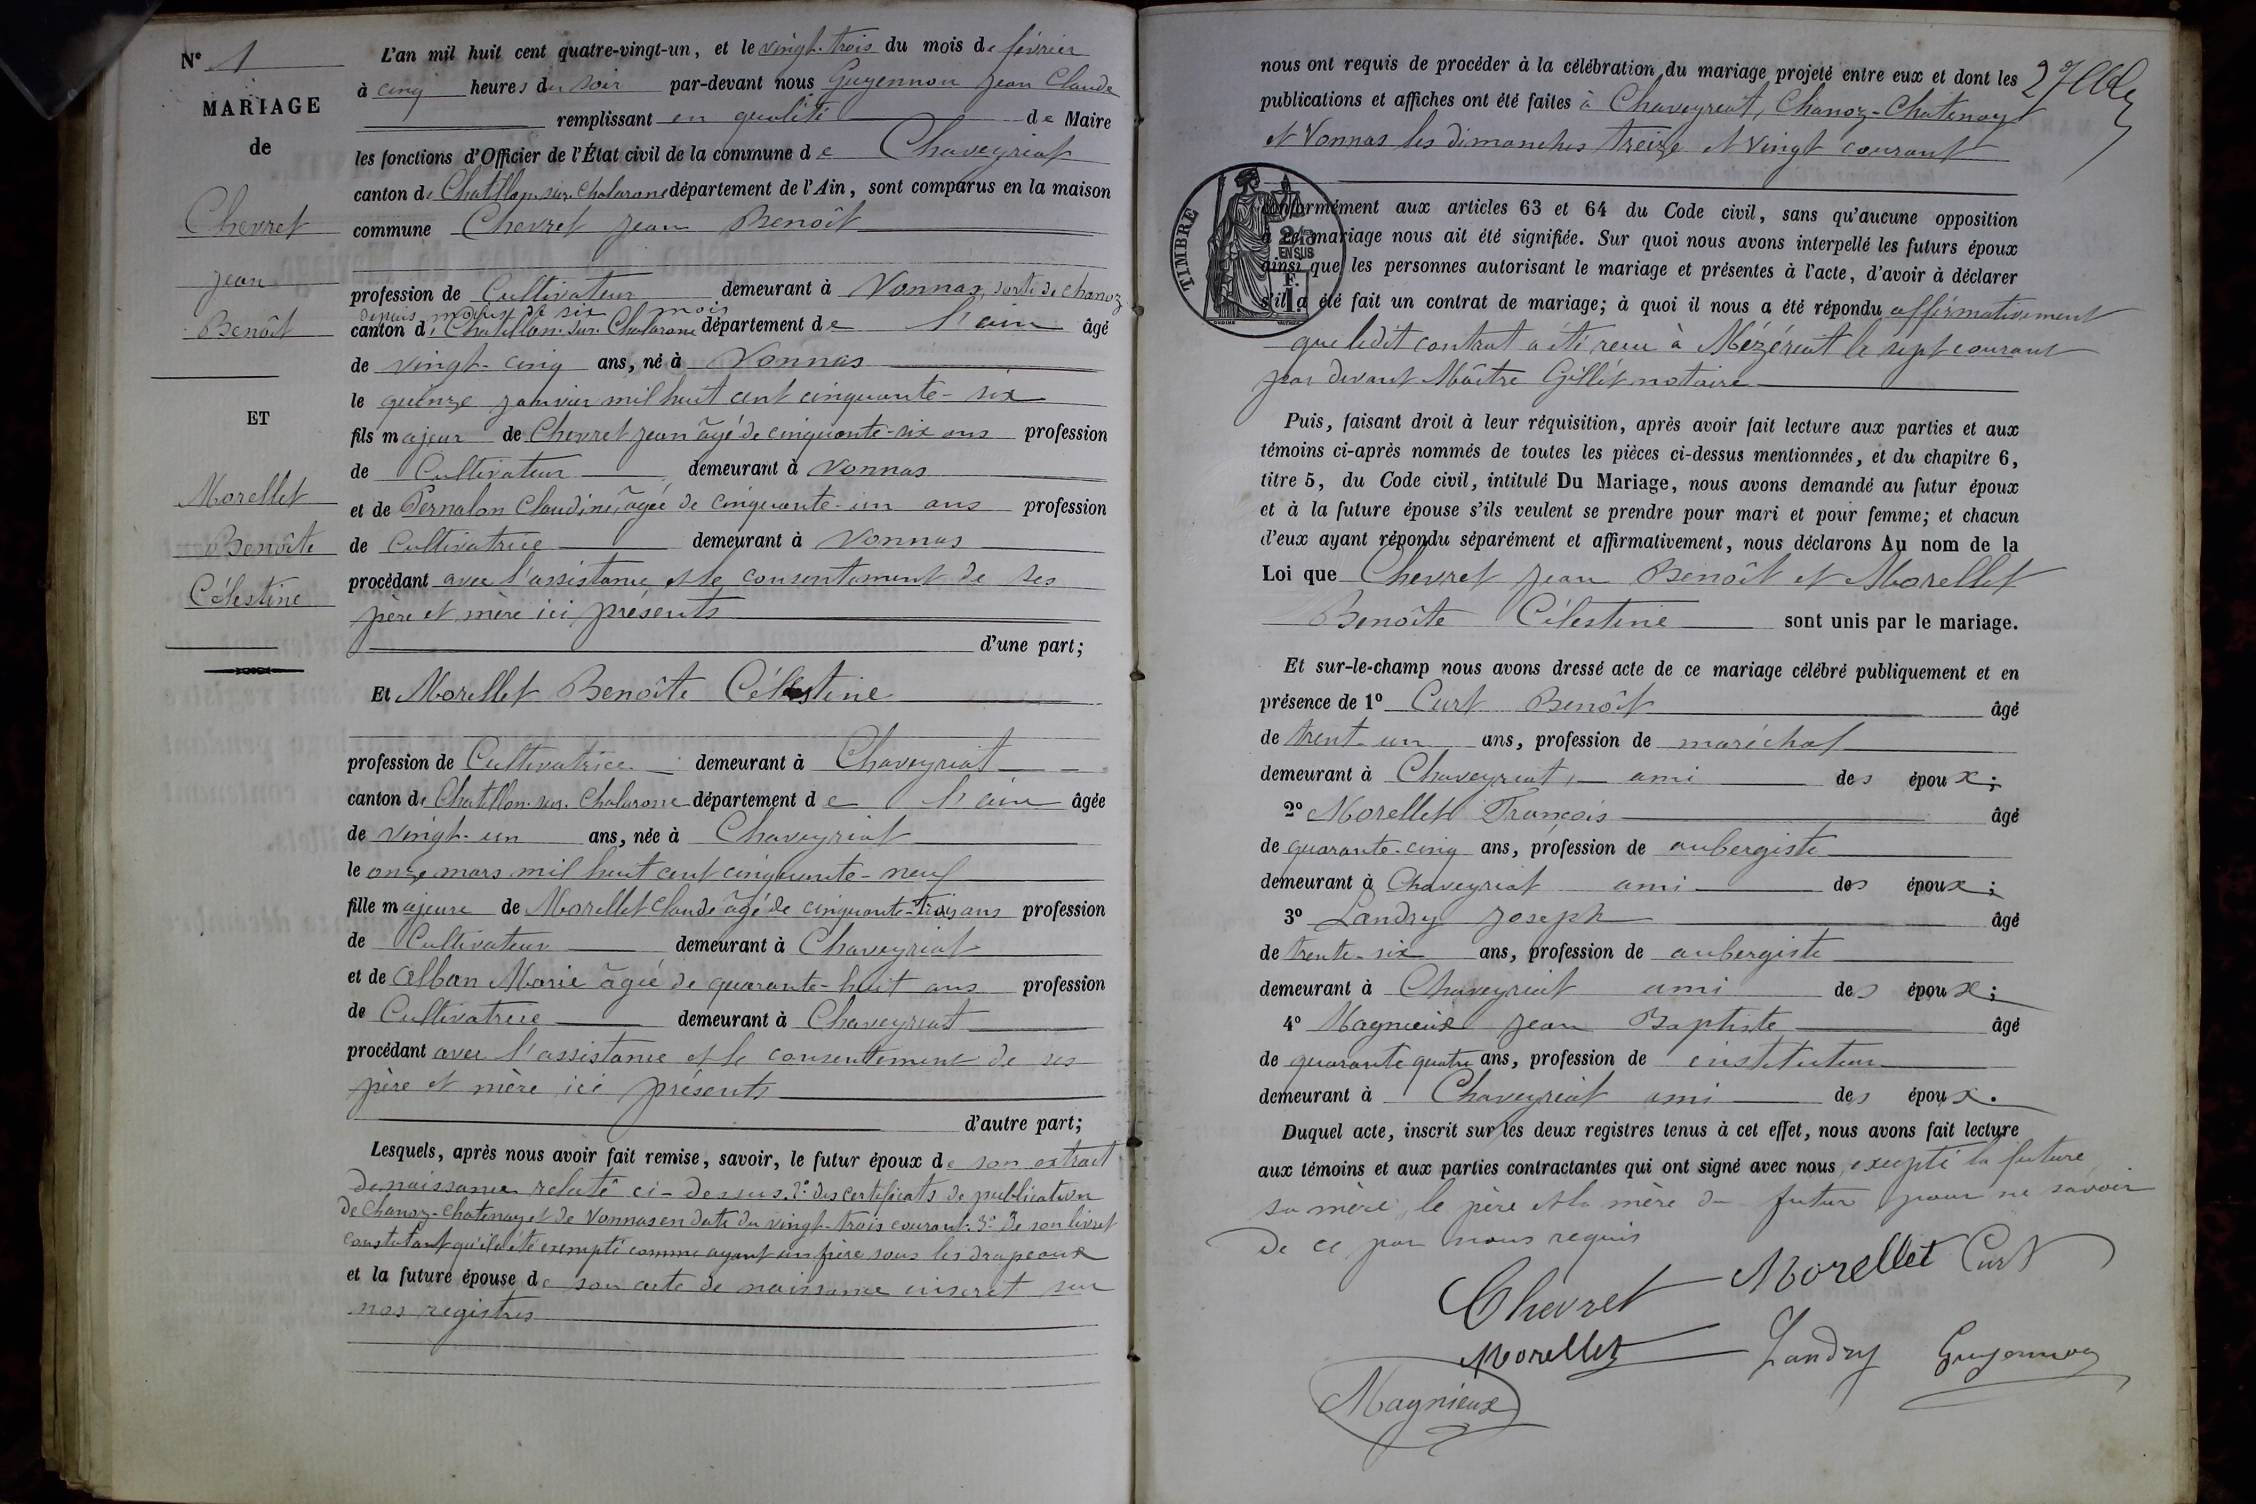 N° 1
MARIAGE
de
Chevret
Jean
Benoît
ET
Morellet
Benoîte
Célestine
L'an mil huit cent quatre-vingt-un, et le vingt-trois du mois de février
à cinq heures du soir par-devant nous Guyennon Jean Claude
remplissant en qualité de Maire
les fonctions d'Officier de l'État civil de la commune de Chaveyriat
canton de Chatillon-sur-Chalaronne département de l'Ain, sont comparus en la maison
commune Chevret Jean Benoît
profession de Cultivateur demeurant à Vonnas, sorti de Chanoz
depuis moins de six mois
canton de Chatillon-sur-Chalaronne département de l'ain âgé
de vingt-cinq ans, né à Vonnas
le quinze janvier mil huit cent cinquante-six
fils majeur de Chevret Jean âgé de cinquante-six ans profession
de Cultivateur demeurant à Vonnas
et de Pernalon Claudine, âgée de cinquante-un ans profession
de Cultivatrice demeurant à Vonnas
procédant avec l'assistance et le consentement de ses
père et mère ici présents
d'une part;
Et Morellet Benoîte Célestine
profession de Cultivatrice demeurant à Chaveyriat
canton de Chatillon-sur-Chalaronne département de l'ain âgée
de vingt-un ans, née à Chaveyriat
le onze mars mil huit cent cinquante-neuf
fille majeure de Morellet Claude âgé de cinquante-trois ans profession
de Cultivateur demeurant à Chaveyriat
et de Alban Marie âgée de quarante-huit ans profession
de Cultivatrice demeurant à Chaveyriat
procédant avec l'assistance et le consentement de ses
père et mère ici présents
d'autre part;
Lesquels, après nous avoir fait remise, savoir, le futur époux de son extrait
de naissance relaté ci-dessus. 2° des certificats de publication
de Chanoz-Chatenay et de Vonnas en date du vingt-trois courant. 3° De son livret
constatant qu'il a été exempté comme ayant un frère sous les drapeaux
et la future épouse de son acte de naissance inscrit sur
nos registres
nous ont requis de procéder à la célébration du mariage projeté entre eux et dont les
publications et affiches ont été faites à Chaveyriat, Chanoz-Chatenay
et Vonnas les dimanches treize et vingt courant
TIMBRE
2/10 EN SUS
F.
conformément aux articles 63 et 64 du Code civil, sans qu'aucune opposition
à ce mariage nous ait été signifiée. Sur quoi nous avons interpellé les futurs époux
ainsi que les personnes autorisant le mariage et présentes à l'acte, d'avoir à déclarer
s'il a été fait un contrat de mariage; à quoi il nous a été répondu affirmativement
que ledit contrat a été reçu à Mézériat le sept courant
par devant Maître Gillet notaire
Puis, faisant droit à leur réquisition, après avoir fait lecture aux parties et aux
témoins ci-après nommés de toutes les pièces ci-dessus mentionnées, et du chapitre 6,
titre 5, du Code civil, intitulé Du Mariage, nous avons demandé au futur époux
et à la future épouse s'ils veulent se prendre pour mari et pour femme; et chacun
d'eux ayant répondu séparément et affirmativement, nous déclarons Au nom de la
Loi que Chevret Jean Benoît et Morellet
Benoîte Célestine sont unis par le mariage.
Et sur-le-champ nous avons dressé acte de ce mariage célébré publiquement et en
présence de 1° Curt Benoît âgé
de trent-un ans, profession de maréchal
demeurant à Chaveyriat, ami des époux;
2° Morellet François âgé
de quarante-cinq ans, profession de aubergiste
demeurant à Chaveyriat ami des époux;
3° Landry Joseph âgé
de trente-six ans, profession de aubergiste
demeurant à Chaveyriat ami des époux;
4° Magnieux Jean Baptiste âgé
de quarante quatre ans, profession de instituteur
demeurant à Chaveyriat ami des époux.
Duquel acte, inscrit sur les deux registres tenus à cet effet, nous avons fait lecture
aux témoins et aux parties contractantes qui ont signé avec nous, excepté la future
sa mère, le père et la mère du futur pour ne savoir
de ce par nous requis
Chevret Morellet Curt
Morellet Landry Guyennon
Magnieux